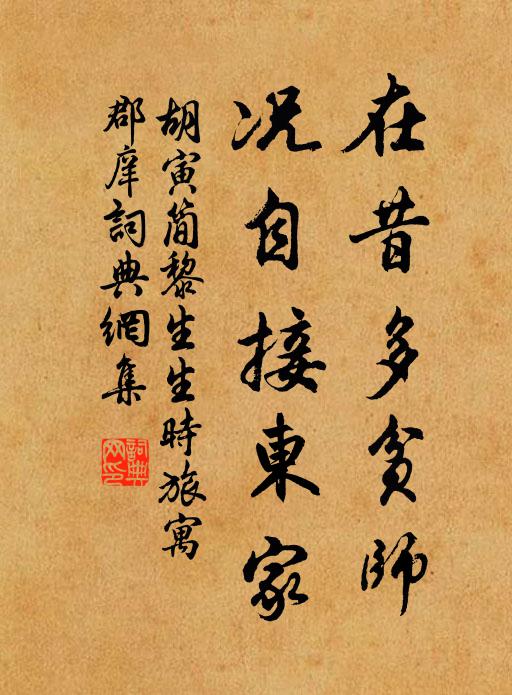 在昔多贫師
况自接東家
胡寅简黎生生時旅寓
郡庠詞典網集
詞典網印